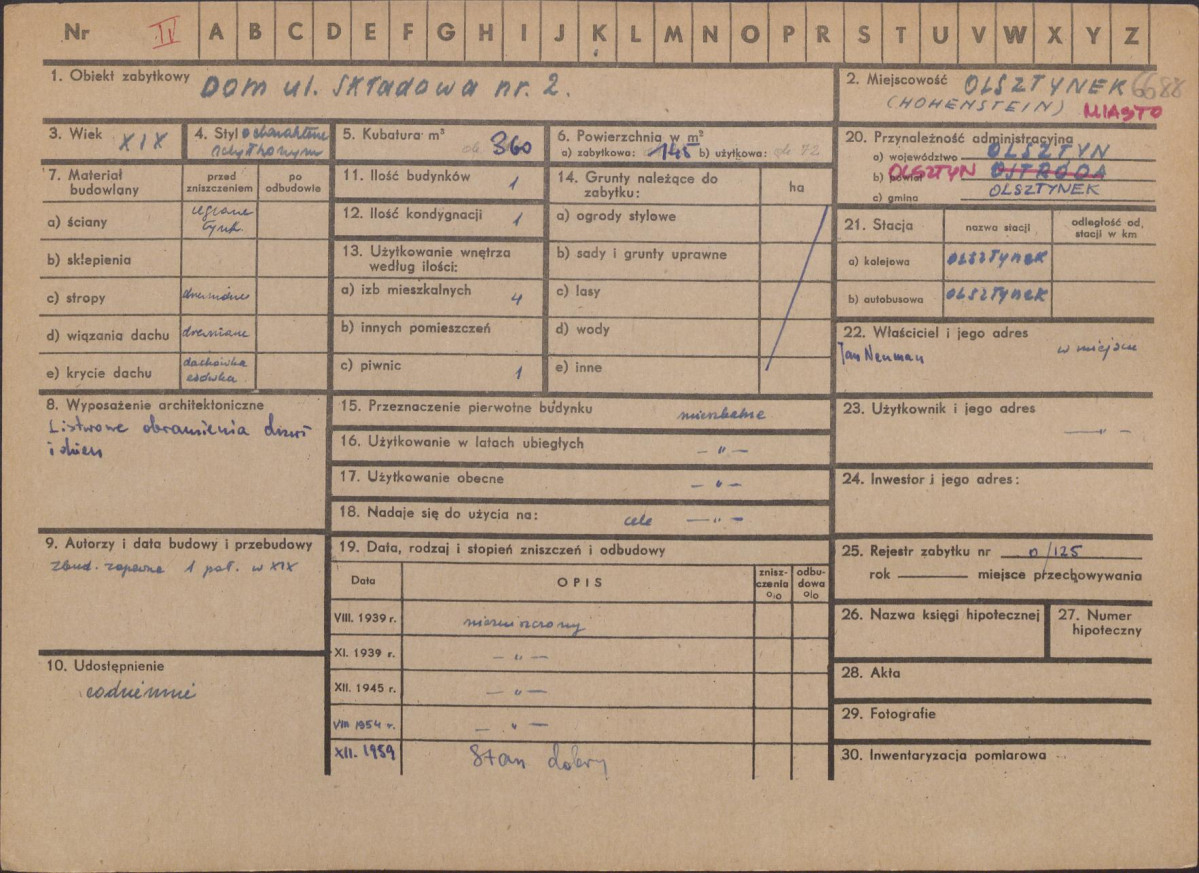 Nr II A B C D E F G H I J K L M N O P R S T U V W X Y Z
1. Obiekt zabytkowy Dom ul. Składowa nr. 2.
2. Miejscowość OLSZTYNEK 6688
(HOHENSTEIN) MIASTO
3. Wiek XIX
4. Styl o charakterze
5. Kubatura m³ ok 360
6. Powierzchnia w m²
a) zabytkowa: 145 b) użytkowa: ok 72
20. Przynależność administracyjna
a) województwo OLSZTYN
b) powiat OLSZTYN OSTRÓDA
c) gmina OLSZTYNEK
7. Materiał budowlany
przed zniszczeniem
po odbudowie
a) ściany ceglane tynk.
b) sklepienia
c) stropy drewniane
d) wiązania dachu drewniane
e) krycie dachu dachówka esówka
11. Ilość budynków 1
12. Ilość kondygnacji 1
13. Użytkowanie wnętrza
według ilości:
a) izb mieszkalnych 4
b) innych pomieszczeń
c) piwnic 1
14. Grunty należące do
zabytku:
ha
a) ogrody stylowe
b) sady i grunty uprawne
c) lasy
d) wody
e) inne
21. Stacja
nazwa stacji
odległość od stacji w km
a) kolejowa OLSZTYNEK
b) autobusowa OLSZTYNEK
22. Właściciel i jego adres
Jan Neuman w miejscu
8. Wyposażenie architektoniczne
Listwowe obramienia drzwi
i okien
15. Przeznaczenie pierwotne budynku mieszkalne
16. Użytkowanie w latach ubiegłych – " –
17. Użytkowanie obecne – " –
18. Nadaje się do użycia na: cele – " –
23. Użytkownik i jego adres
– " –
24. Inwestor i jego adres:
9. Autorzy i data budowy i przebudowy
zbud. zapewne 1 poł. w XIX
19. Data, rodzaj i stopień zniszczeń i odbudowy
Data
OPIS
znisz-
czenia
o/o
odbu-
dowa
o/o
VIII. 1939 r. niezniszczony
XI. 1939 r. – " –
XII. 1945 r. – " –
VIII 1954 r. – " –
XII. 1959 Stan dobry
25. Rejestr zabytku nr 0/125
rok miejsce przechowywania
26. Nazwa księgi hipotecznej
27. Numer
hipoteczny
10. Udostępnienie
codziennie
28. Akta
29. Fotografie
30. Inwentaryzacja pomiarowa